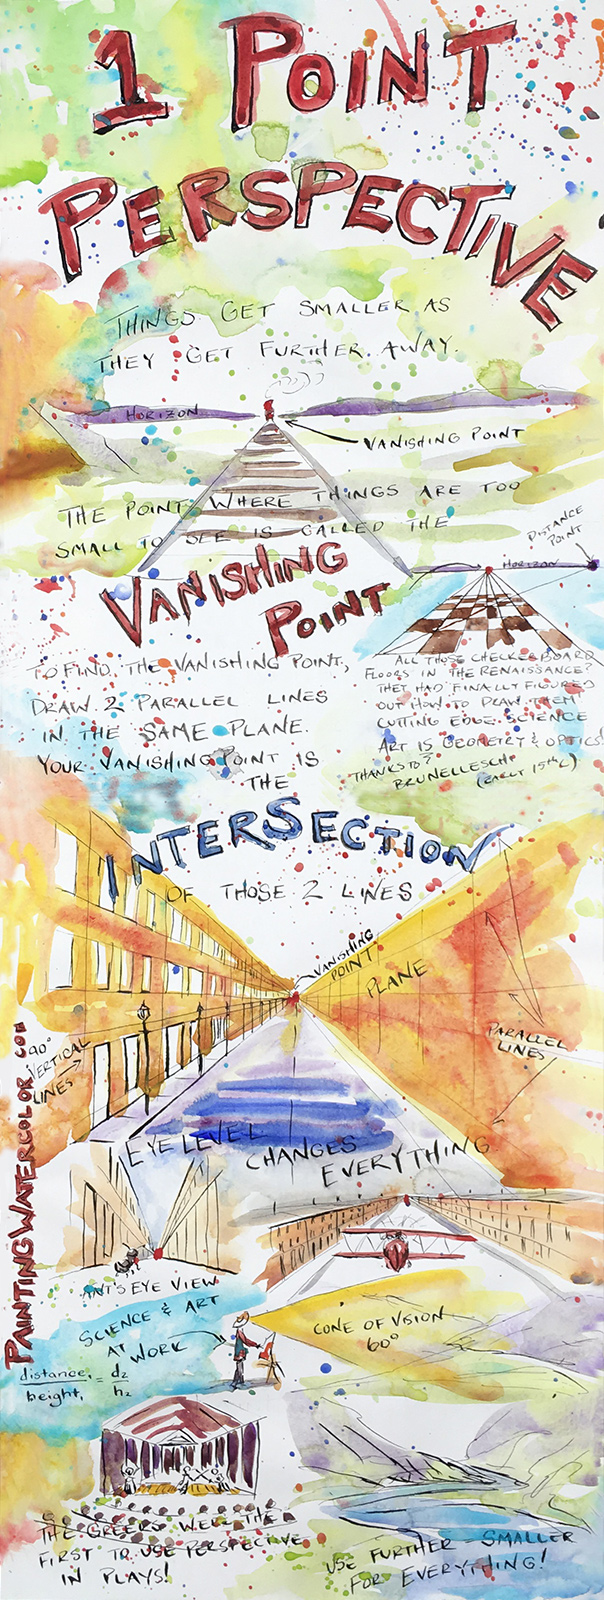 1 POINT
PERSPECTIVE
THINGS GET SMALLER AS
THEY GET FURTHER AWAY.
HORIZON
VANISHING POINT
THE POINT WHERE THINGS ARE TOO
SMALL TO SEE IS CALLED THE
VANISHING
POINT
DISTANCE
POINT
HORIZON
TO FIND THE VANISHING POINT,
DRAW 2 PARALLEL LINES
IN THE SAME PLANE.
YOUR VANISHING POINT IS
THE
ALL THOSE CHECKERBOARD
FLOORS IN THE RENAISSANCE?
THEY HAD FINALLY FIGURED
OUT HOW TO DRAW THEM
CUTTING EDGE SCIENCE
ART IS GEOMETRY & OPTICS!
THANKS TO?
BRUNELLESCHI
(EARLY 15th C)
INTERSECTION
OF THOSE 2 LINES
VANISHING
POINT
PLANE
PARALLEL
LINES
90°
VERTICAL
LINES
PAINTINGWATERCOLOR.COM
EYE LEVEL CHANGES EVERYTHING
ANT'S EYE VIEW
SCIENCE & ART
AT WORK
CONE OF VISION
60°
distance₁ = d₂
height₁ h₂
THE GREEKS WERE THE
FIRST TO USE PERSPECTIVE
IN PLAYS!
USE FURTHER = SMALLER
FOR EVERYTHING!